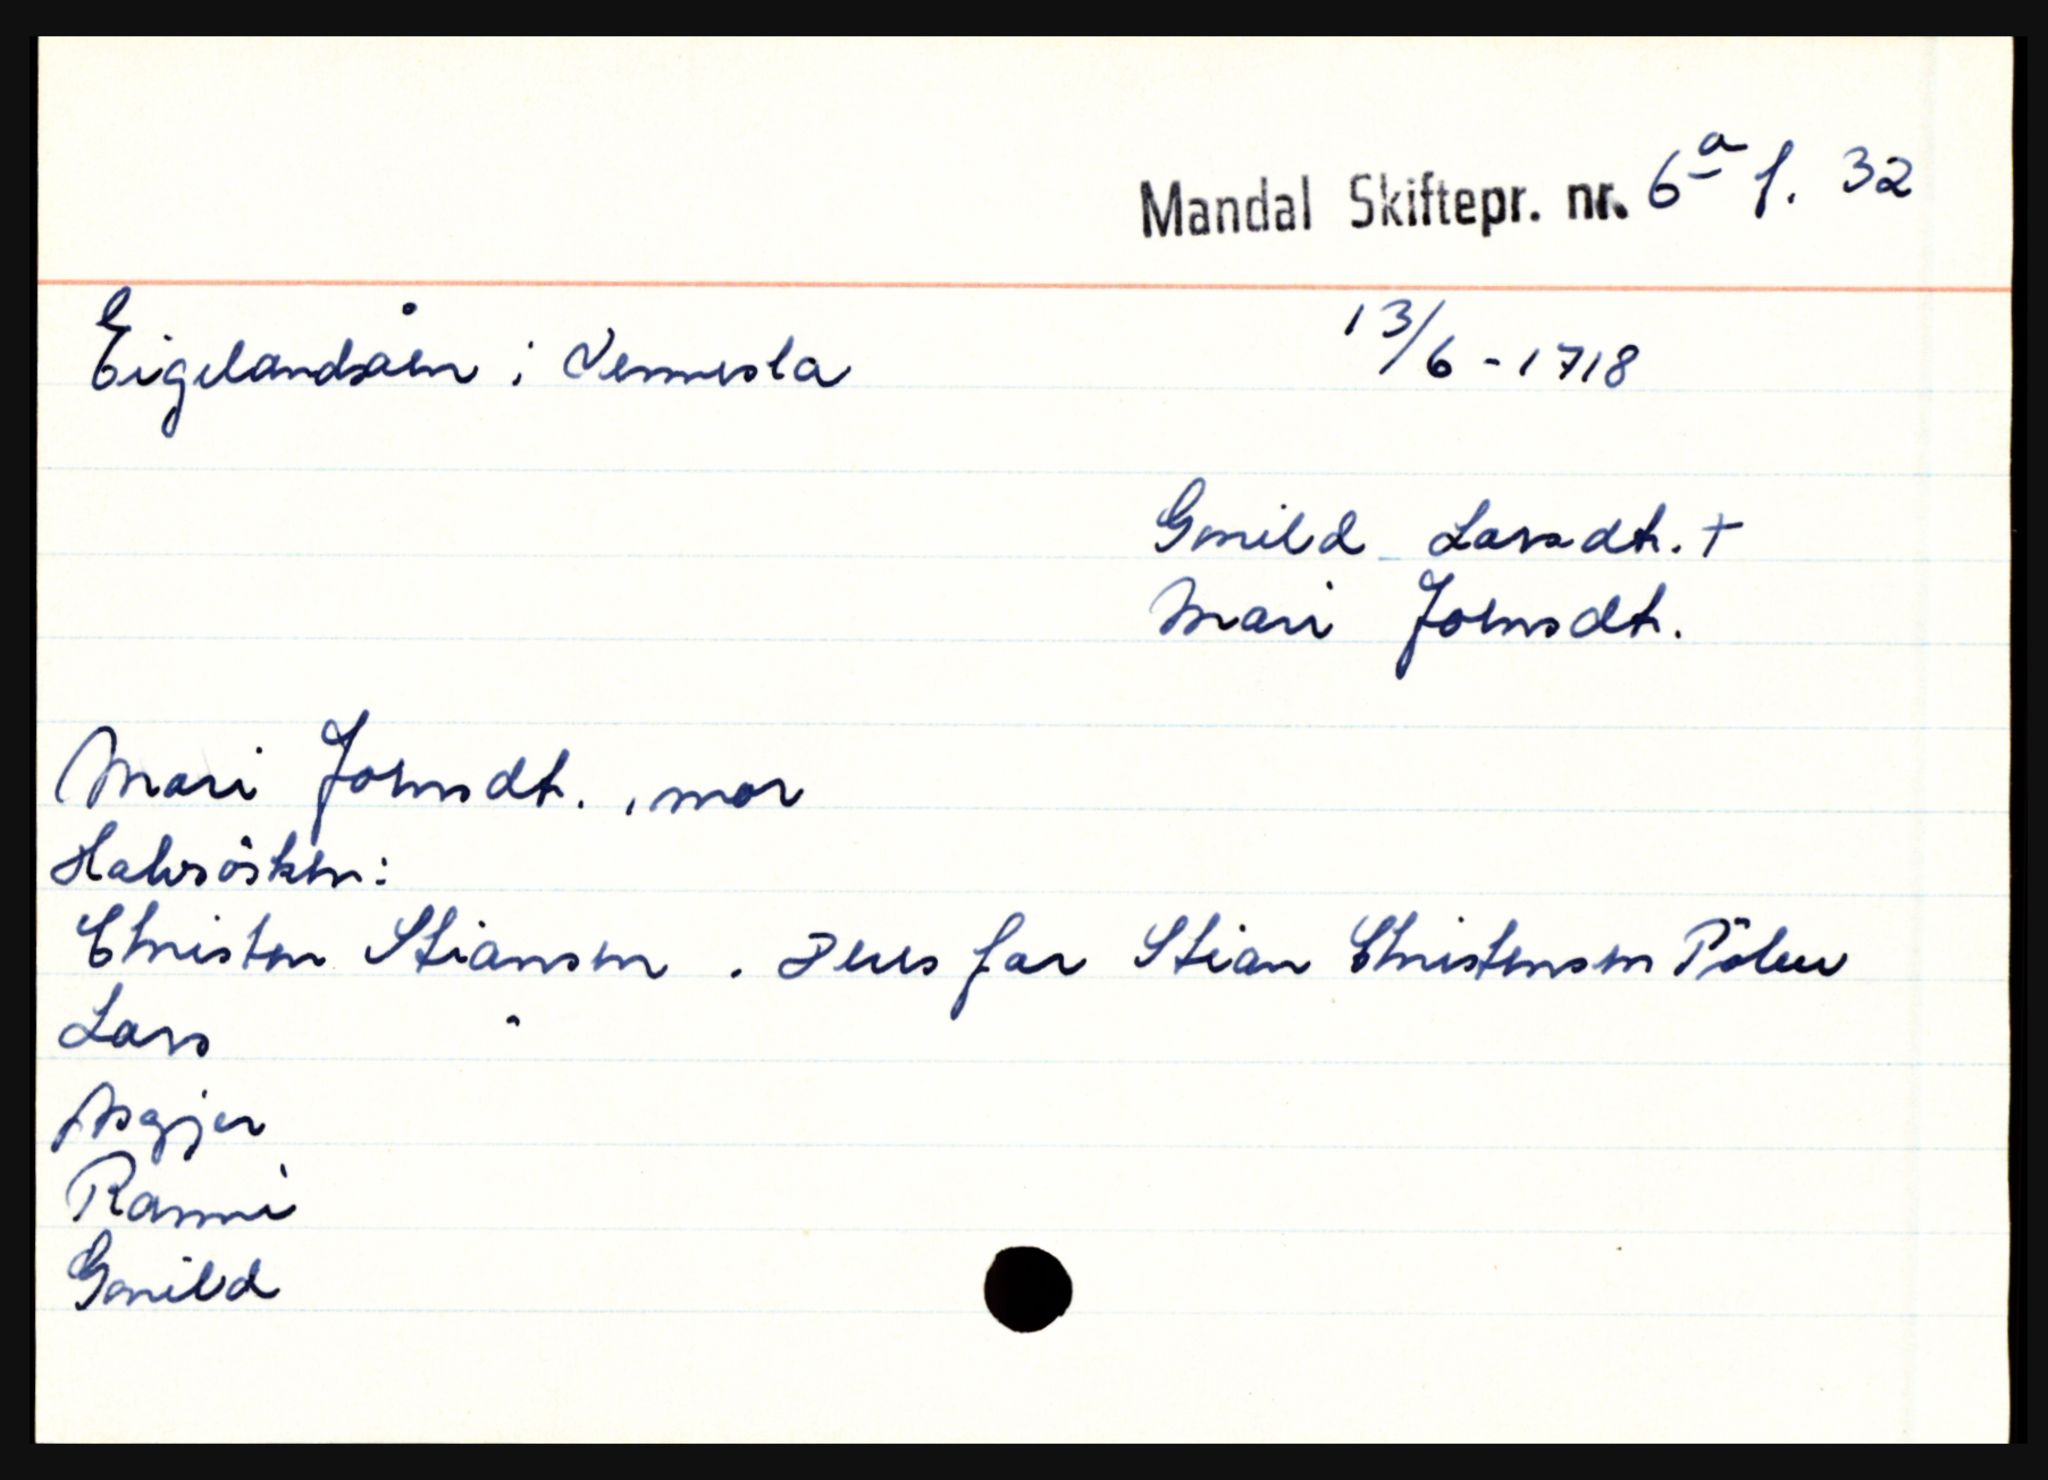 Mandal Skiftepr. nr. 6a f. 32
Eigelandsåen i Vennesla 13/6 - 1718
Gunild Larsdtr. +
Mari Johnsdtr.
Mari Johnsdtr., mor
Halvsösken:
Christen Stiansen. Deres far Stian Christensen
Lars "
Asgjer
Ranni
Gunild